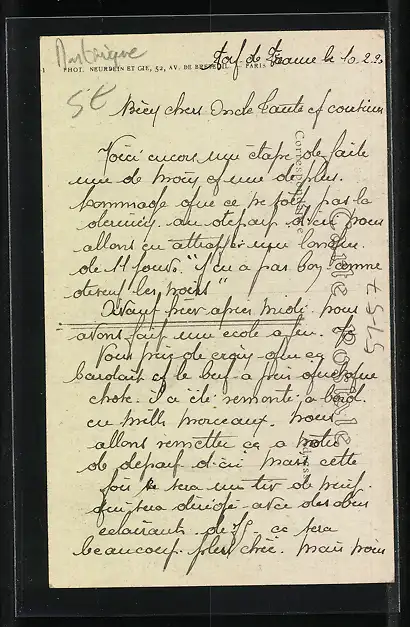 Martinique
PHOT. NEURDEIN ET CIE, 52, AV. DE BRETEUIL. — PARIS
Fort de France le 10.2.2
5 €
Bien chers Oncle Tante et cousins
Voici encore une étape de faite
une de moins et une de plus.
hommage que ce ne soit pas la
dernière. au départ d'ici nous
allons en attraper une longue.
de 11 jours. "y en a pas bon comme
disent les noirs"
Avant hier après midi. nous
avons fait une école a feu. Je
Vous prie de croire que ça
bardait et le but a pris quelque
chose. il a été remonté a bord.
en mille morceaux. nous
allons remettre ça a notre
départ d'ici mais cette
fois ce sera un tir de nuit.
qui sera dirigé avec des obus
éclairants. de ce sera
beaucoup plus chic. mais nous
Correspondance
Carte Postale
5157